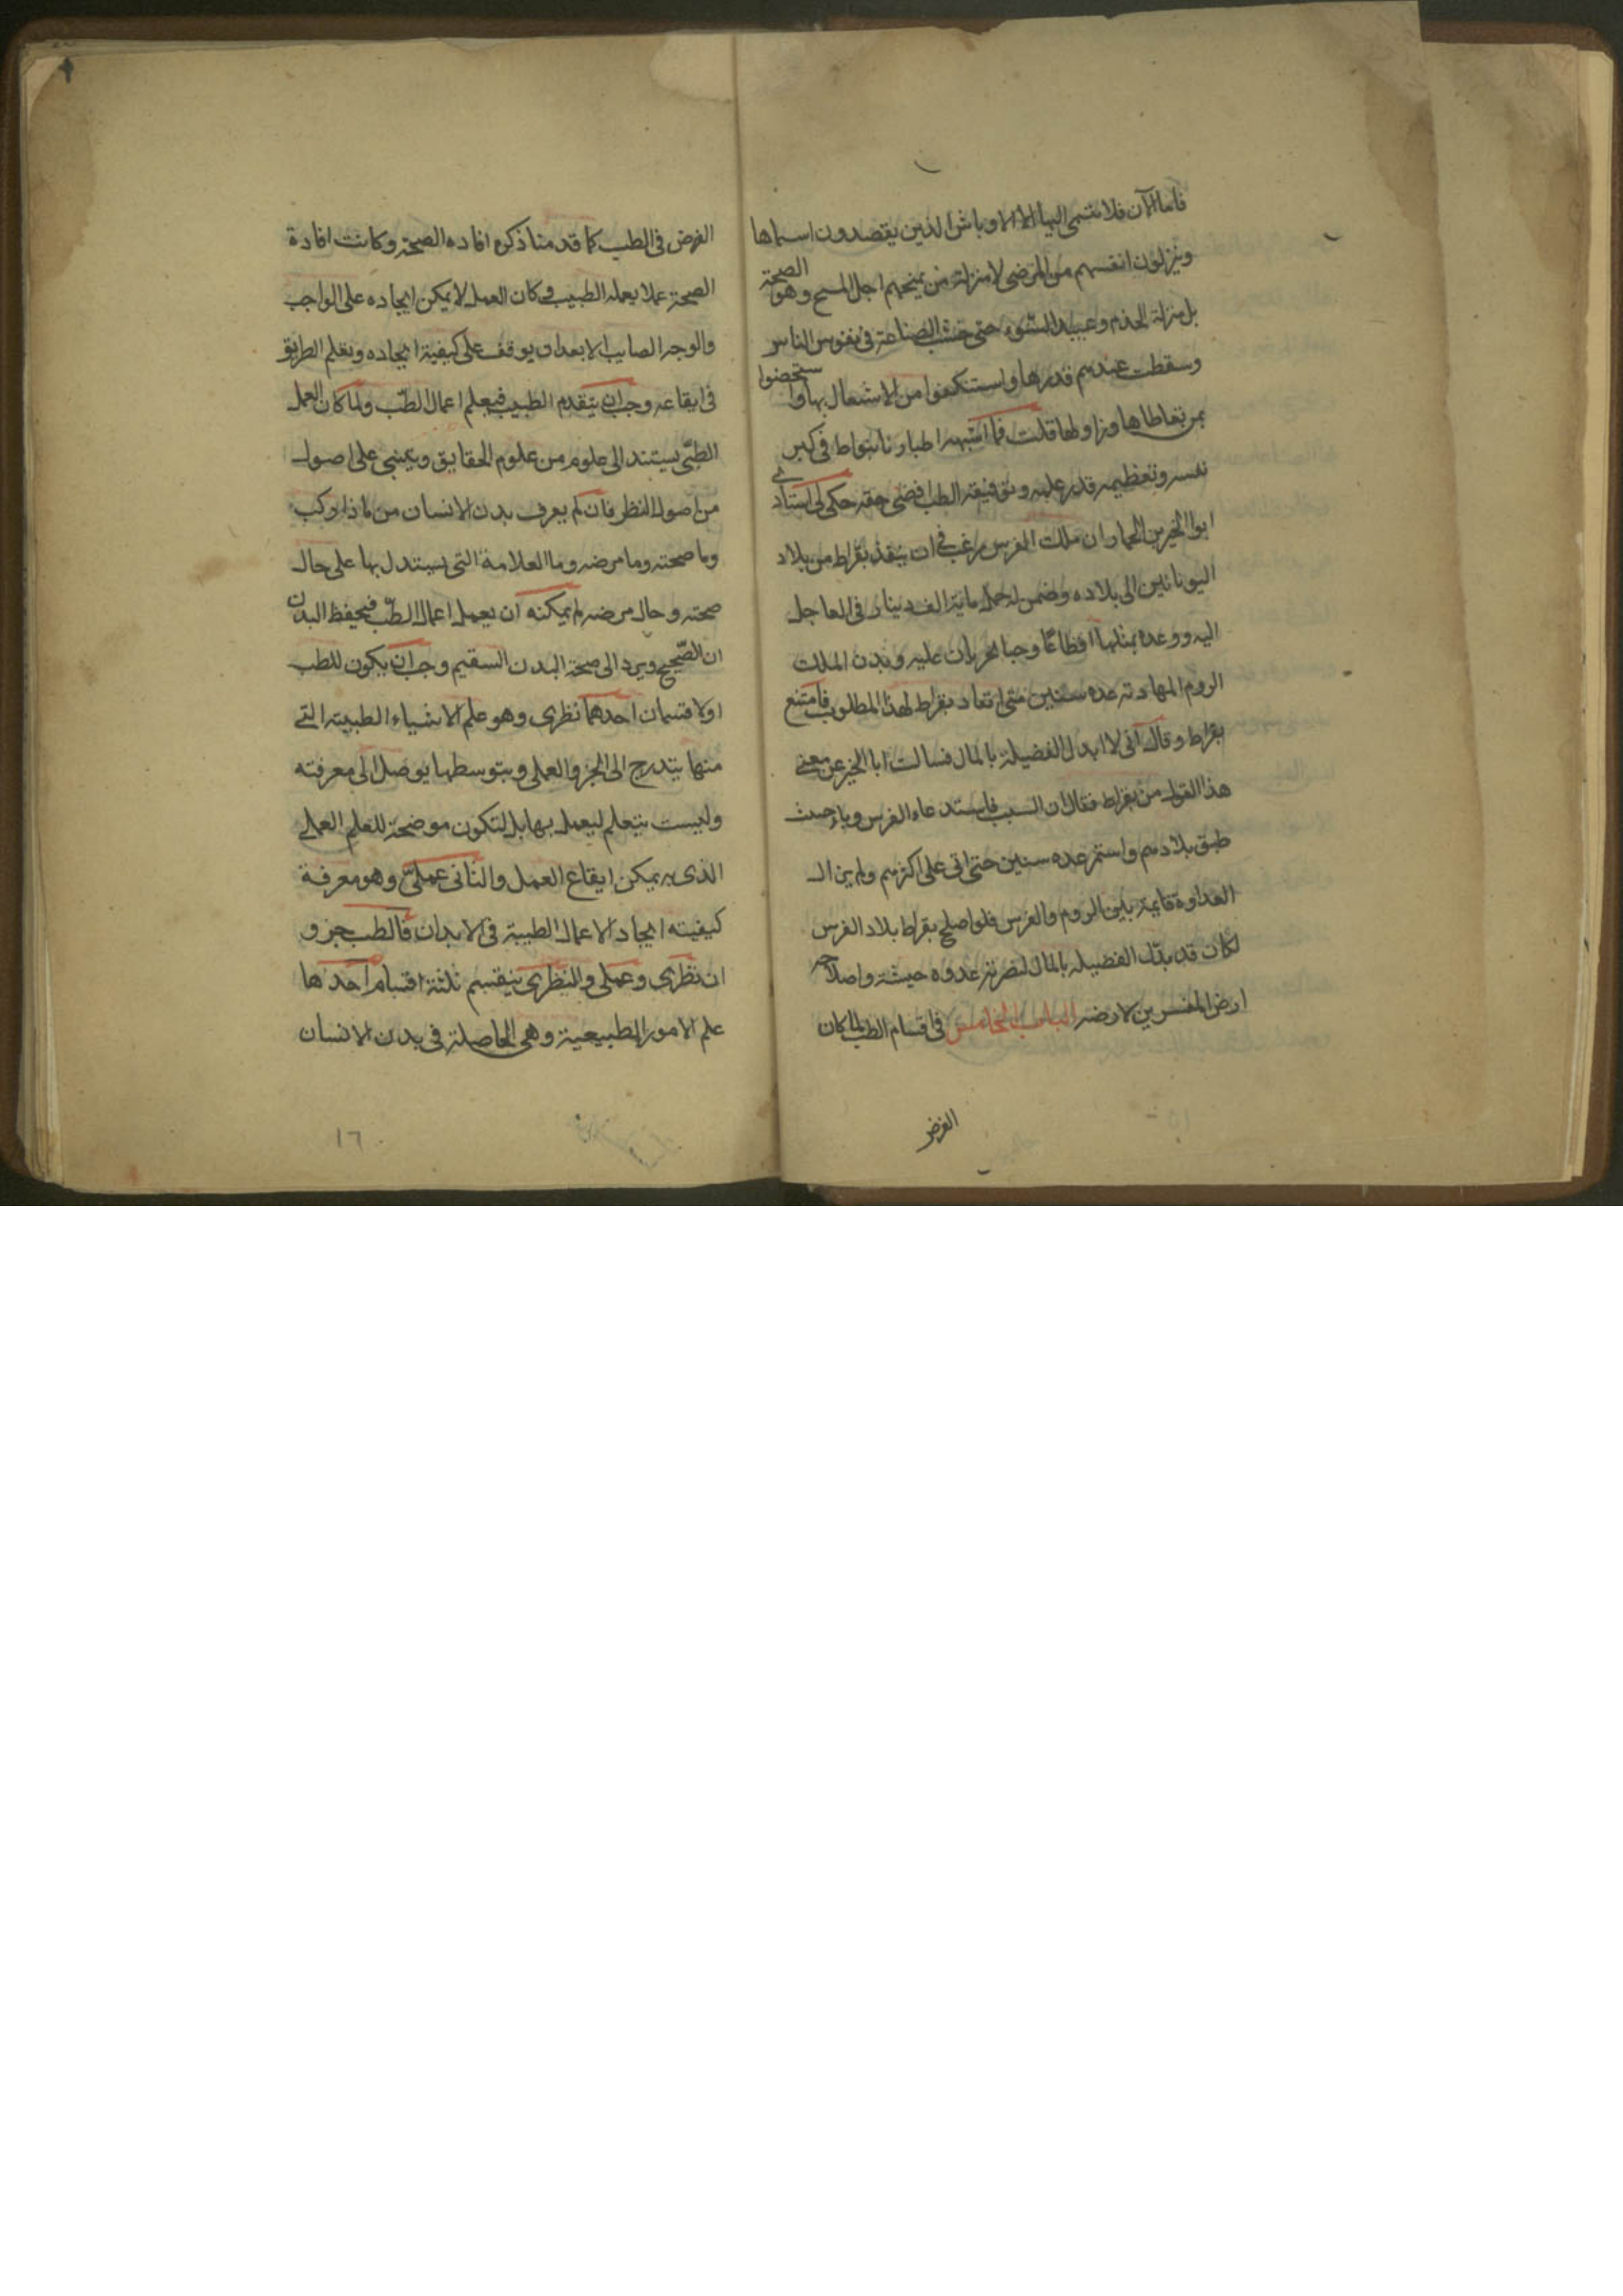 فاما الآن فلا ينتمي اليها الا الاوباش الذين يقصدون اسماها
وينزلون انفسهم من المرضى لا منزلة من يمنحهم اجل المنح وهو الصحة
بل منزلة الخدم وعبيد السوء حتى خست الصناعة في نفوس الناس
وسقطت عندهم قدرها واستنكفوا من الاشتغال بها وا ستخصوا
بمن تعاطاها وزاولها قلت فما اشبهه اطباونا ببقراط في كبر
نفسه وتعظيمه قدر علمه وتوفيقه الطب اقضى حقه حكى لي استاذي
ابوا الخير بن الخمار ان ملك الفرس رغب في ان ينفذ بقراط من بلاد
اليونانين الى بلاده وضمن له حمل ماية الف دينار في العاجل
اليه ووعده بمثلها اقطاعا وحبا يجريان عليه وبذن الملك
الروم المهادنة عدة سنين متى انقاد بقراط لهذا المطلوب فامتنع
بقراط وقال اني لا ابدل الفضيلة بالمال فسالت ابا الخير عن معنى
هذا القول من بقراط فقال ان السبب في استدعاء الفرس وباء حدث
طبق بلادهم واستمر عدة سنين حتى اتى على اكثرهم ولم يزال
العداوة قايمة بين الروم والفرس فلو اصلح بقراط بلاد الفرس
لكان قد بدل الفضيلة بالمال لنصرته عدوه واصلاحه
ارض المفسدين لارضه الباب الخامس في اقسام الطب لما كان
الغرض
الغرض في الطب كما قدمنا ذكره افادة الصحة وكانت افادة
الصحة عملا يعمله الطبيب وكان العمل لا يمكن ايجاده على الواجب
والوجه الصايب الا بعد ان يوقف على كيفية ايجاده وتعلم الطريق
في ايقاعه وجب ان يتقدم الطبيب فيعلم اعمال الطب ولما كان العمل
الطبي يستند الى علوم من علوم الحقايق ويبتني على اصول
من اصول النظر فان لم يعرف بدن الانسان من ماذا ركب
وما صحته وما مرضه وما العلامة التي يستدل بها على حال
صحته وحال مرضه لم يمكنه ان يعمل اعمال الطب فيحفظ البدن
ان الصحيح ويرد الى صحة البدن السقيم وجب ان يكون للطب
اولا قسمان احدهما نظري وهو علم الاشياء الطبية التي
منها يتدرج الى الجزو العملي وبتوسطها يوصل الى معرفته
وليست يتعلم ليعمل بها بل لتكون موضحة للعلم العملي
الذي به يمكن ايقاع العمل والثاني عملي وهو معرفة
كيفيته ايجاد الاعمال الطبية في الابدان فالطب جزو
ان نظري وعملي والنظري ينقسم ثلثة اقسام احدها
علم الامور الطبيعية وهي الحاصلة في بدن الانسان
١٦